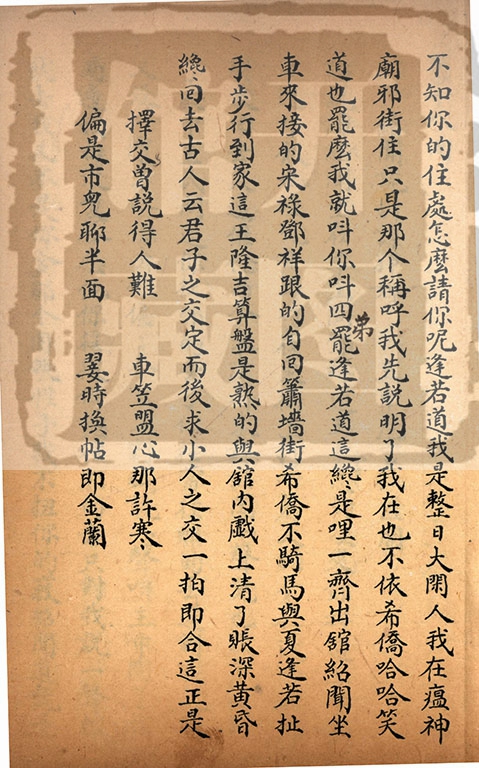 不知你的住處怎麼請你呢逢若道我是整日大閑人我在瘟神
廟邪街住只是那个稱呼我先説明了我在也不依希僑哈哈笑
道也罷麼我就呌你呌四弟罷逢若道這纔是哩一齊出舘紹聞坐
車來接的宋祿鄧祥跟的自回簫墻街希僑不騎馬與夏逢若扯
手步行到家這王隆吉算盤是熟的與舘內戱上清了賬深黄昏
纔回去古人云君子之交定而後求小人之交一拍即合這正是
擇交曽説得人難 車笠盟心那許寒
偏是市児聊半面 霎時換帖即金蘭